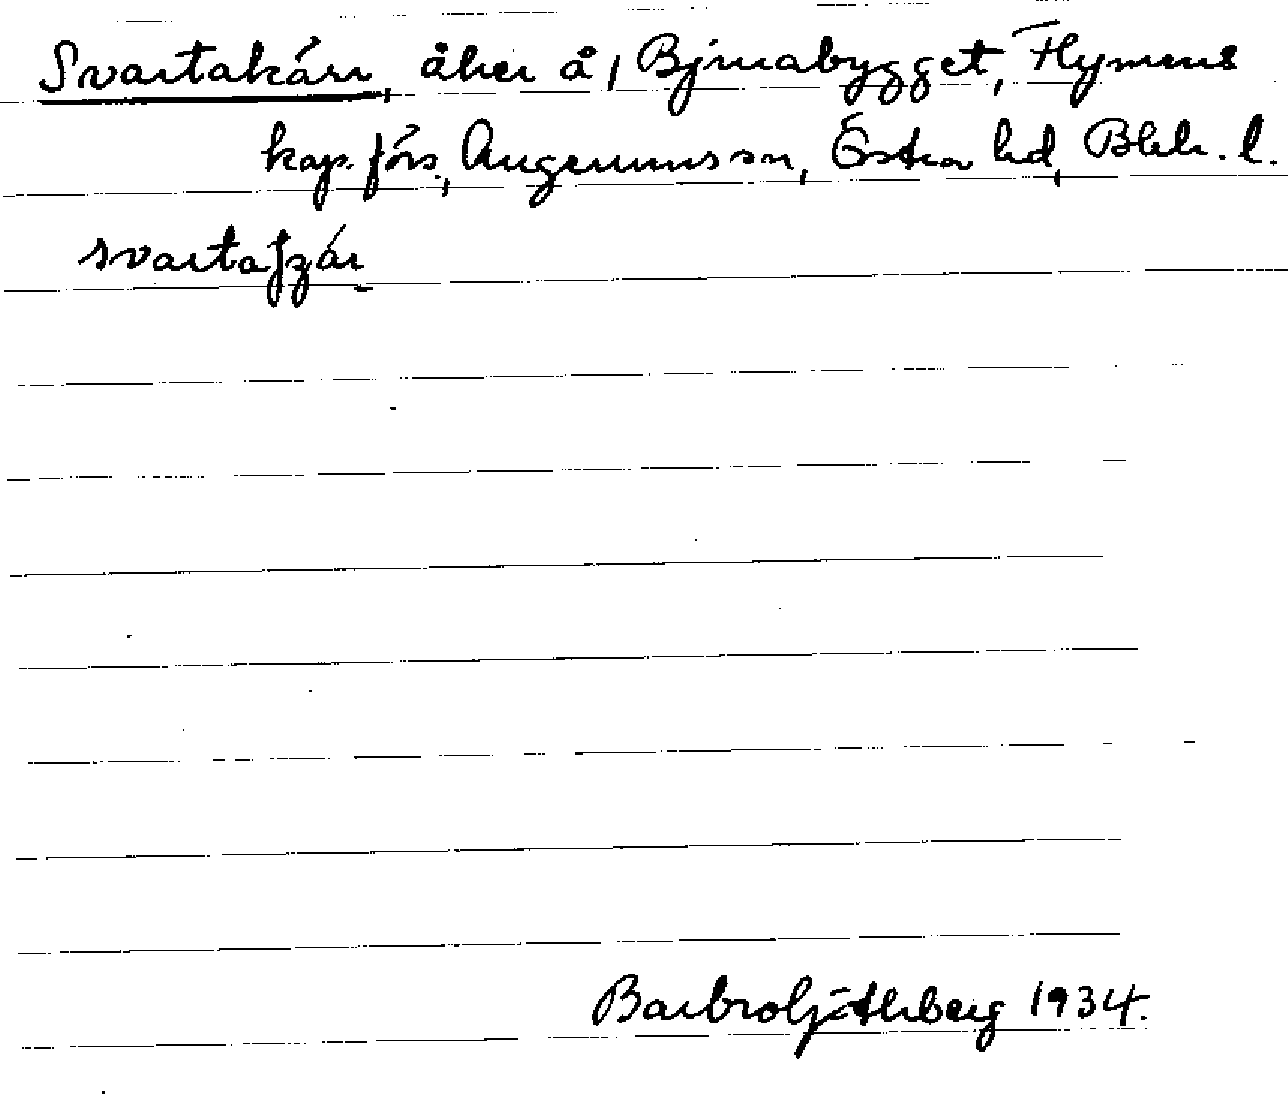 Svartakärr, åker å, Björnabygget, Flymens
kap. förs., Augerumssn, Östra hd, Blek. l.
svartaʃʒár
Barbro Göthberg 1934.